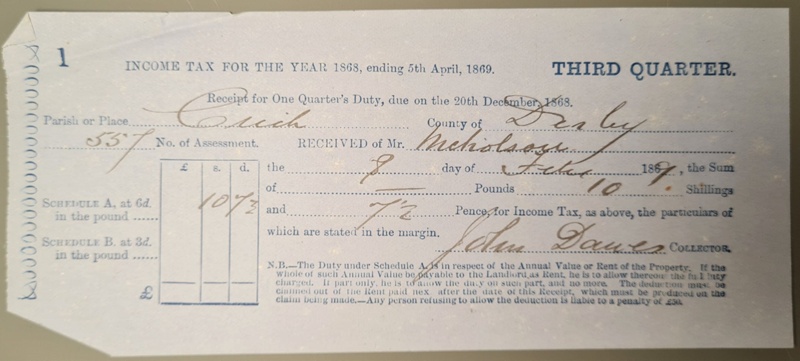 1
INCOME TAX FOR THE YEAR 1868, ending 5th April, 1869.
THIRD QUARTER.
Receipt for One Quarter's Duty, due on the 20th December, 1868.
Parish or Place Crich County of Derby
557 No. of Assessment. RECEIVED of Mr. Nicholson
£ s. d.
the 8 day of Feb 1869, the Sum
of — Pounds 10 Shillings
SCHEDULE A, at 6d. in the pound ...... 10 7½
and 7½ Pence, for Income Tax, as above, the particulars of
which are stated in the margin.
SCHEDULE B. at 3d. in the pound ......
John Dawes COLLECTOR.
£
N.B.—The Duty under Schedule A. is in respect of the Annual Value or Rent of the Property. If the
whole of such Annual Value be payable to the Landlord as Rent, he is to allow thereout the full duty
charged. If part only, he is to allow the duty on such part, and no more. The deduction must be
claimed out of the Rent paid next after the date of this Receipt, which must be produced on the
claim being made.—Any person refusing to allow the deduction is liable to a penalty of £50.